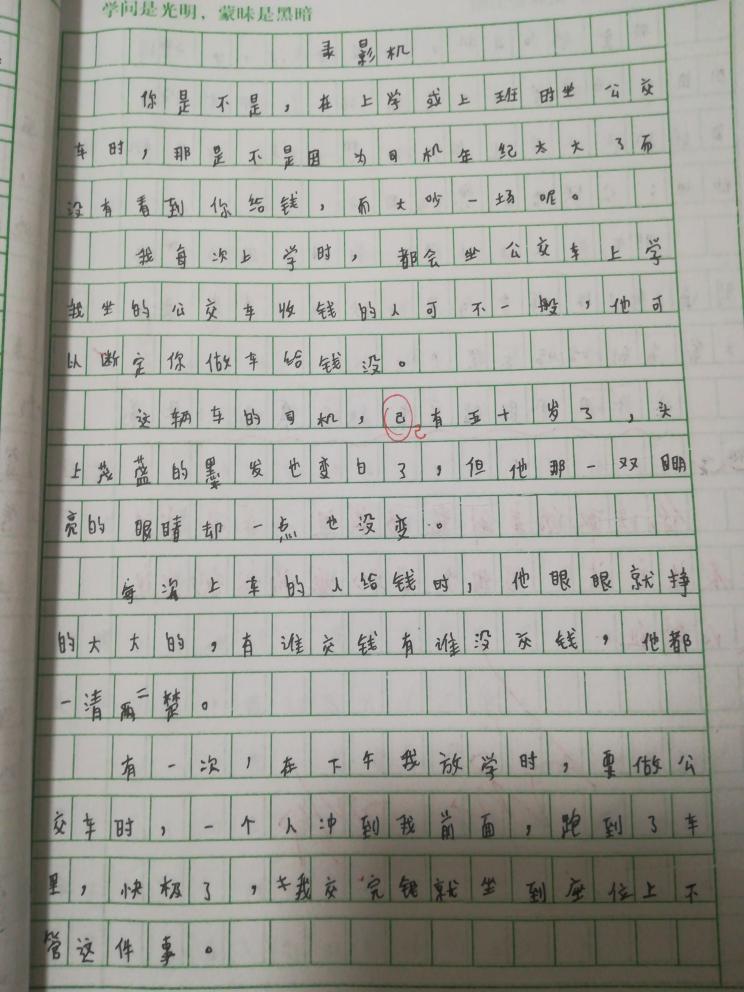 学问是光明，蒙昧是黑暗
录影机
你是不是，在上学或上班时坐公交
车时，那是不是因为司机年纪太大了而
没有看到你给钱，而大吵一场呢。
我每次上学时，都会坐公交车上学
我坐的公交车收钱的人可不一般，他可
以断定你做车给钱没。
这辆车的司机，己有五十岁了，头
已
上茂盛的黑发也变白了，但他那一双明
亮的眼睛却一点也没变。
每当上车的人给钱时，他眼眼就挣
的大大的，有谁交钱有谁没交钱，他都
一清二楚。
有一次，在下午我放学时，要做公
交车时，一个人冲到我前面，跑到了车
里，快极了，我交完钱就坐到座位上不
管这件事。